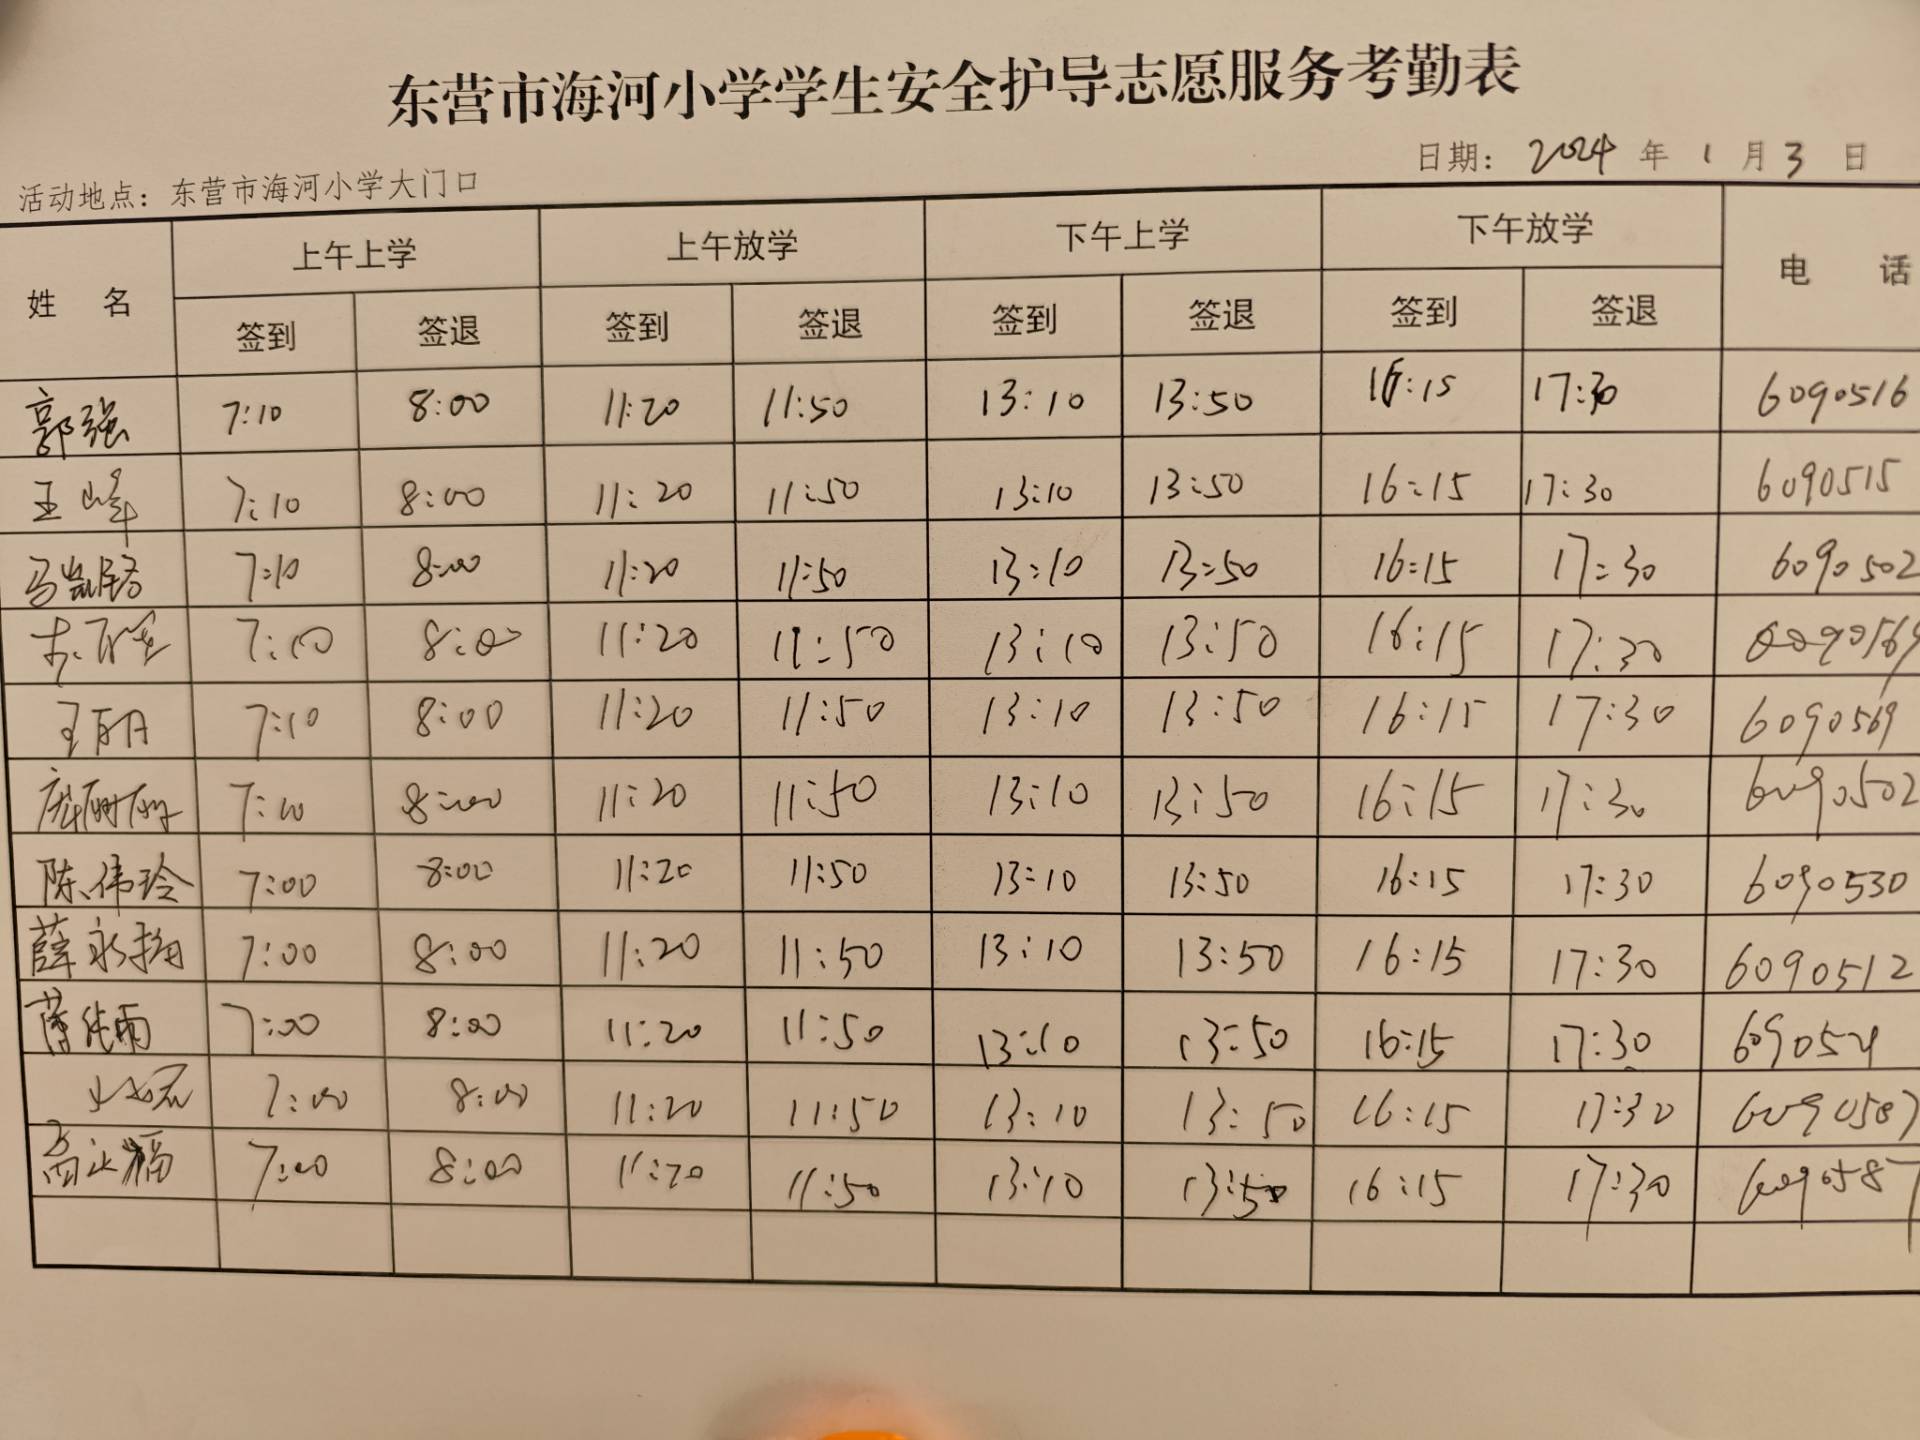 东营市海河小学学生安全护导志愿服务考勤表
日期： 2024 年 1 月 3 日
活动地点：东营市海河小学大门口
姓 名 上午上学 上午放学 下午上学 下午放学 电 话
签到 签退 签到 签退 签到 签退 签到 签退
郭强 7:10 8:00 11:20 11:50 13:10 13:50 16:15 17:30 6090516
王峰 7:10 8:00 11:20 11:50 13:10 13:50 16:15 17:30 6090515
马凯铭 7:10 8:00 11:20 11:50 13:10 13:50 16:15 17:30 6090502
7:10 8:00 11:20 11:50 13:10 13:50 16:15 17:30 6090569
王 7:10 8:00 11:20 11:50 13:10 13:50 16:15 17:30 6090569
庞丽丽 7:10 8:00 11:20 11:50 13:10 13:50 16:15 17:30 6090502
陈伟玲 7:00 8:00 11:20 11:50 13:10 13:50 16:15 17:30 6090530
薛永梅 7:00 8:00 11:20 11:50 13:10 13:50 16:15 17:30 6090512
7:00 8:00 11:20 11:50 13:10 13:50 16:15 17:30
7:00 8:00 11:20 11:50 13:10 13:50 16:15 17:30 6090587
7:00 8:00 11:20 11:50 13:10 13:50 16:15 17:30 6090587